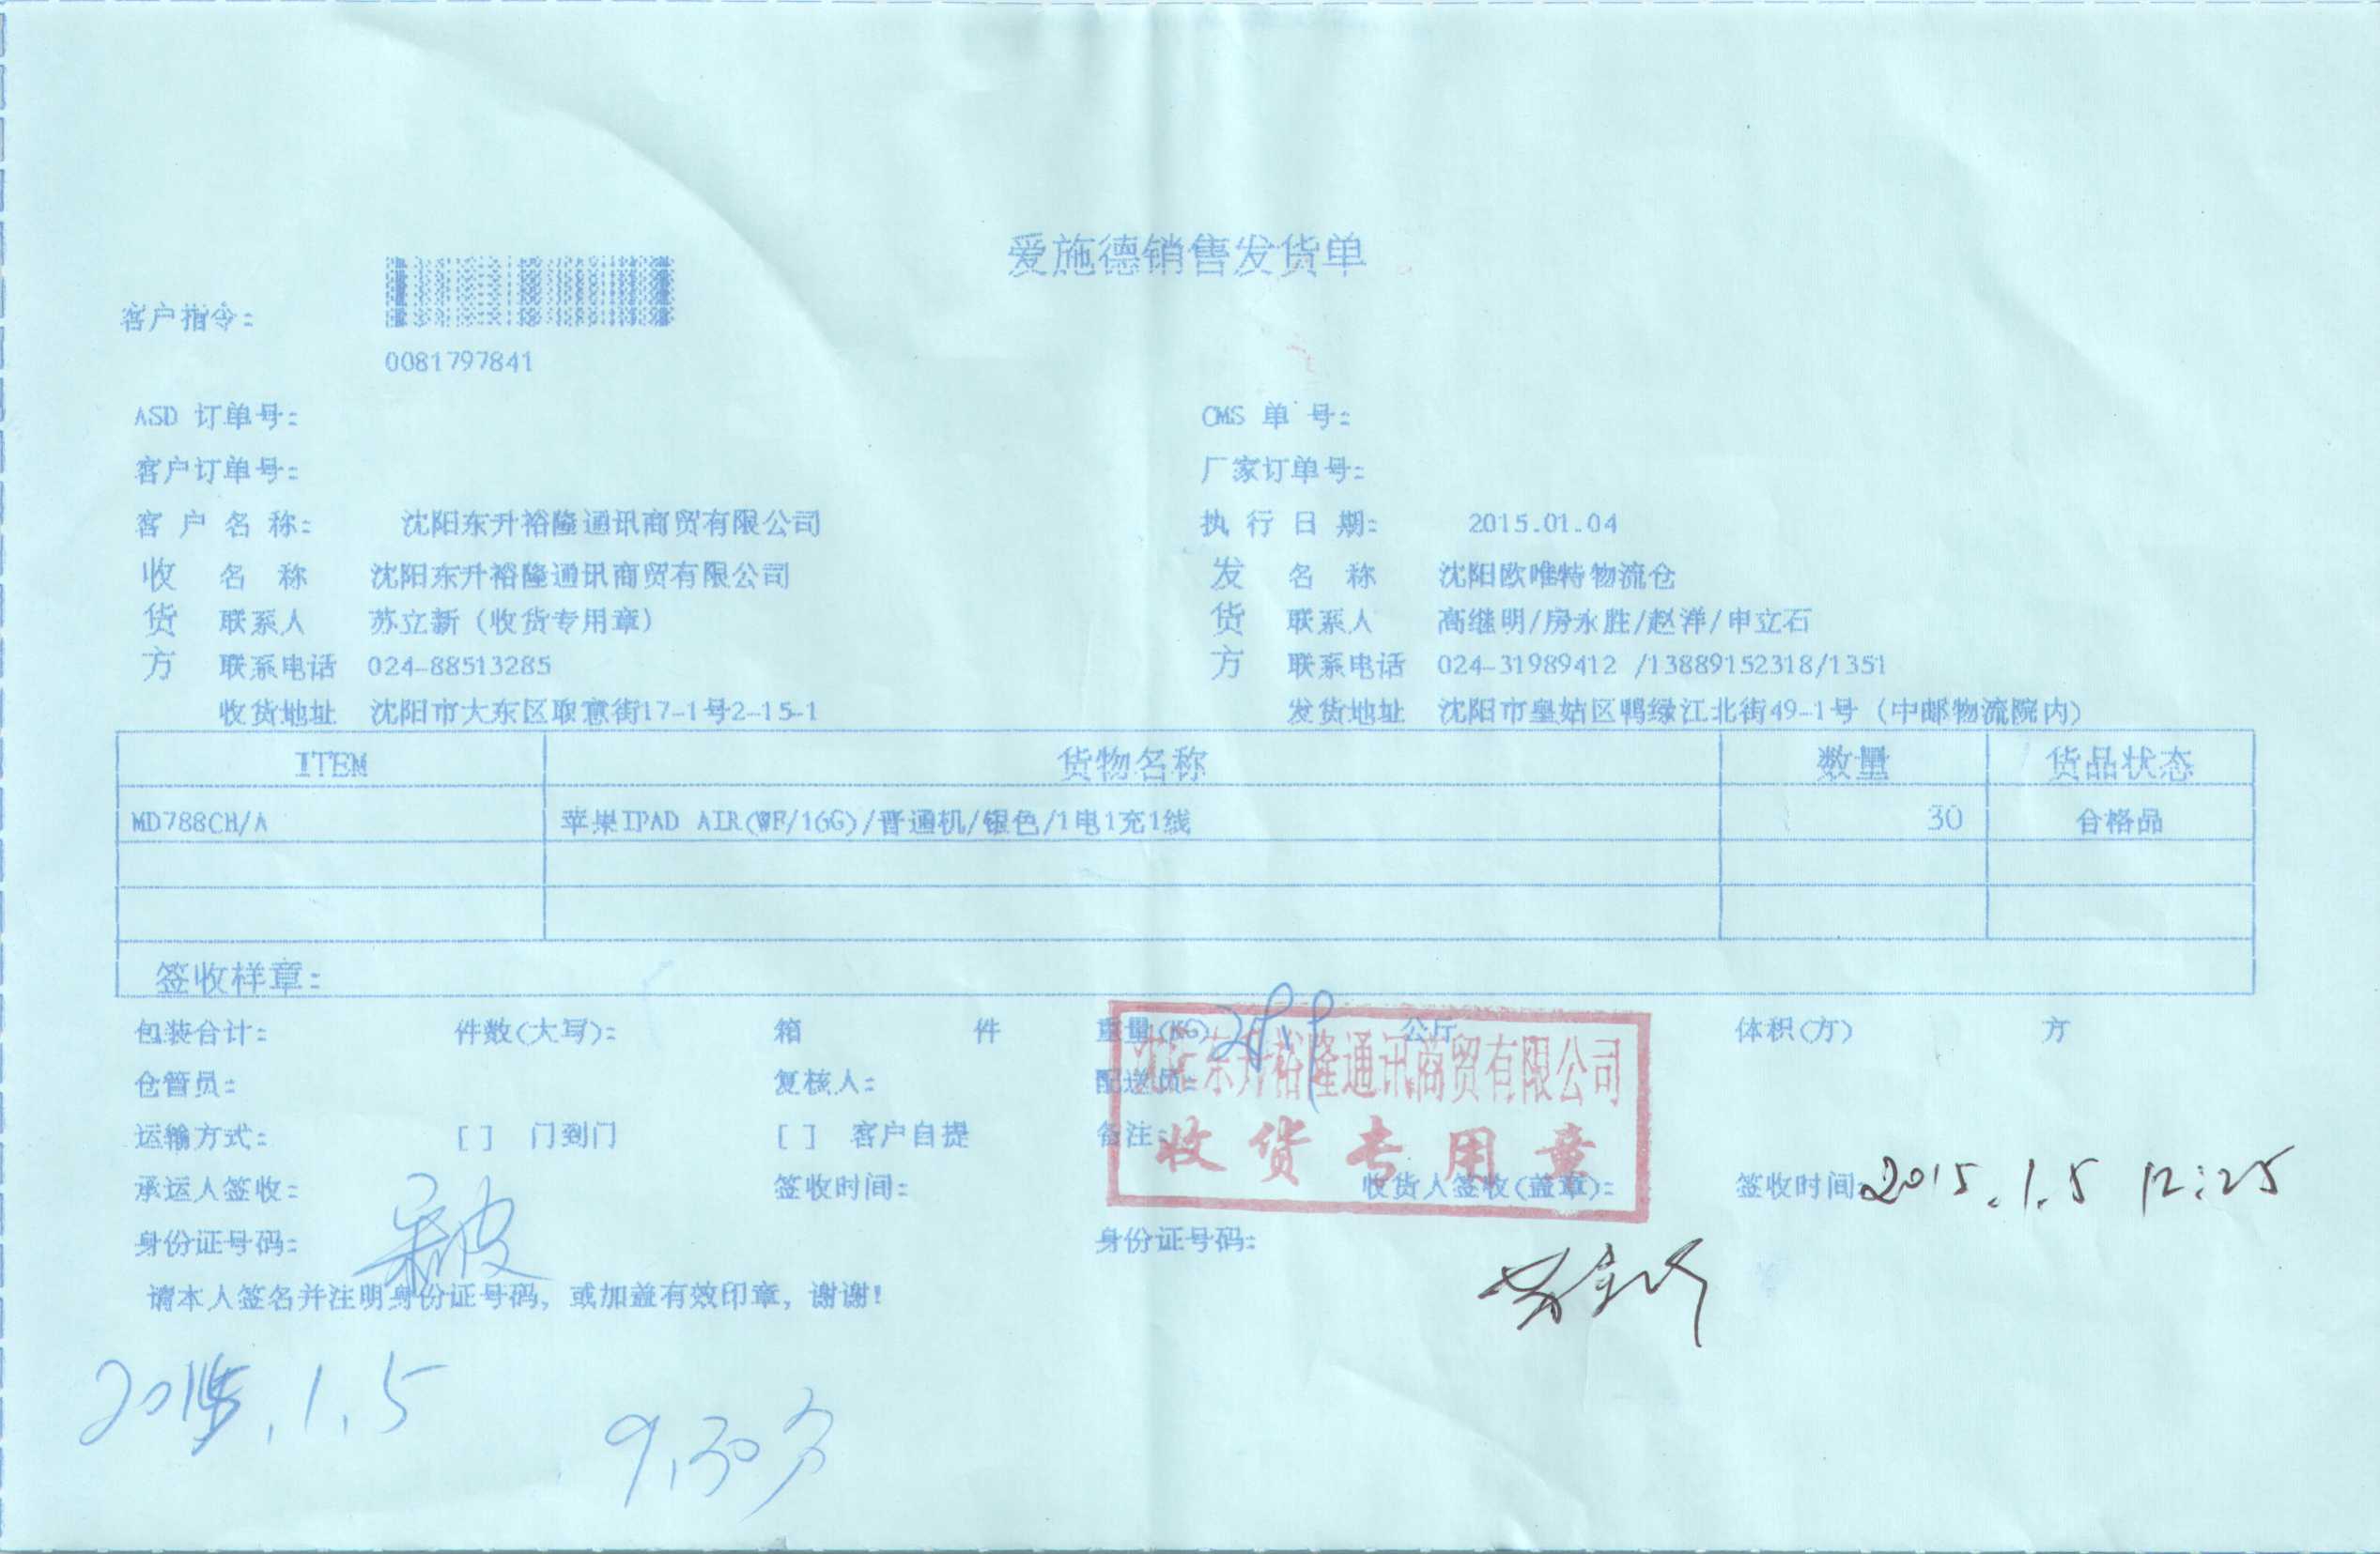 爱施德销售发货单
客户指令:
0081797841
ASD 订单号: CMS 单 号:
客户订单号: 厂家订单号:
客 户 名 称: 沈阳东升裕隆通讯商贸有限公司 执 行 日 期: 2015.01.04
收 名 称 沈阳东升裕隆通讯商贸有限公司 发 名 称 沈阳欧唯特物流仓
货 联系人 苏立新(收货专用章) 货 联系人 高继明/房永胜/赵洋/申立石
方 联系电话 024-88513285 方 联系电话 024-31989412 /13889152318/1351
收货地址 沈阳市大东区取意街17-1号2-15-1 发货地址 沈阳市皇姑区鸭绿江北街49-1号(中邮物流院内)
ITEM 货物名称 数量 货品状态
MD788CH/A 苹果IPAD AIR(WF/16G)/普通机/银色/1电1充1线 30 合格品
签收样章:
包装合计: 件数(大写): 箱 件 重量(KG) 公斤 体积(方) 方
仓管员: 复核人: 配送员:
沈阳东升裕隆通讯商贸有限公司
运输方式: [ ] 门到门 [ ] 客户自提 备注:
收货专用章
承运人签收: 签收时间: 收货人签收(盖章): 签收时间: 2015.1.5 12:25
身份证号码: 身份证号码:
请本人签名并注明身份证号码，或加盖有效印章，谢谢!
2015.1.5
9.30分